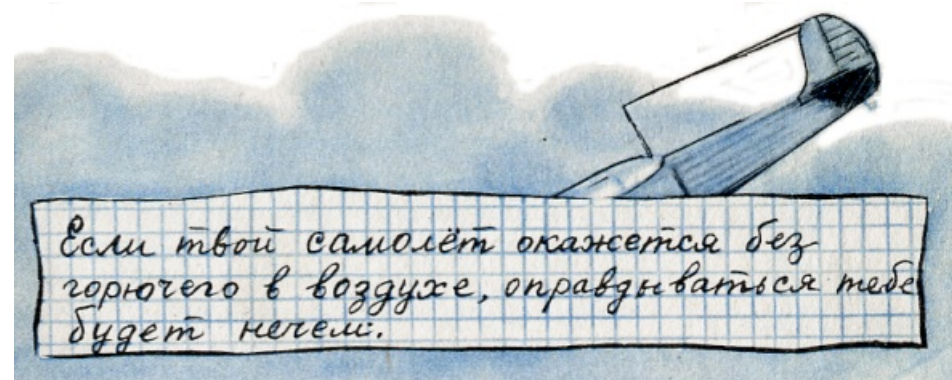 Если твой самолёт окажется без
горючего в воздухе, оправдываться тебе
будет нечем.